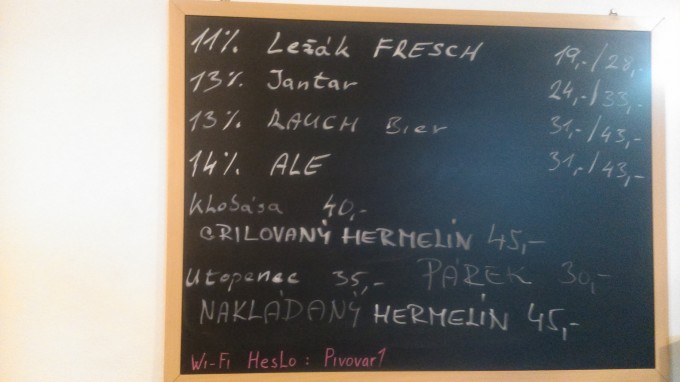 11% Ležák FRESCH 19,-/28,-
13% Jantar 24,-/33,-
13% RAUCH Bier 31,-/43,-
14% ALE 31,-/43,-
Klobása 40,-
GRILOVANÝ HERMELÍN 45,-
Utopenec 35,- PÁREK 30,-
NAKLÁDANÝ HERMELÍN 45,-
Wi-Fi HesLo : Pivovar1